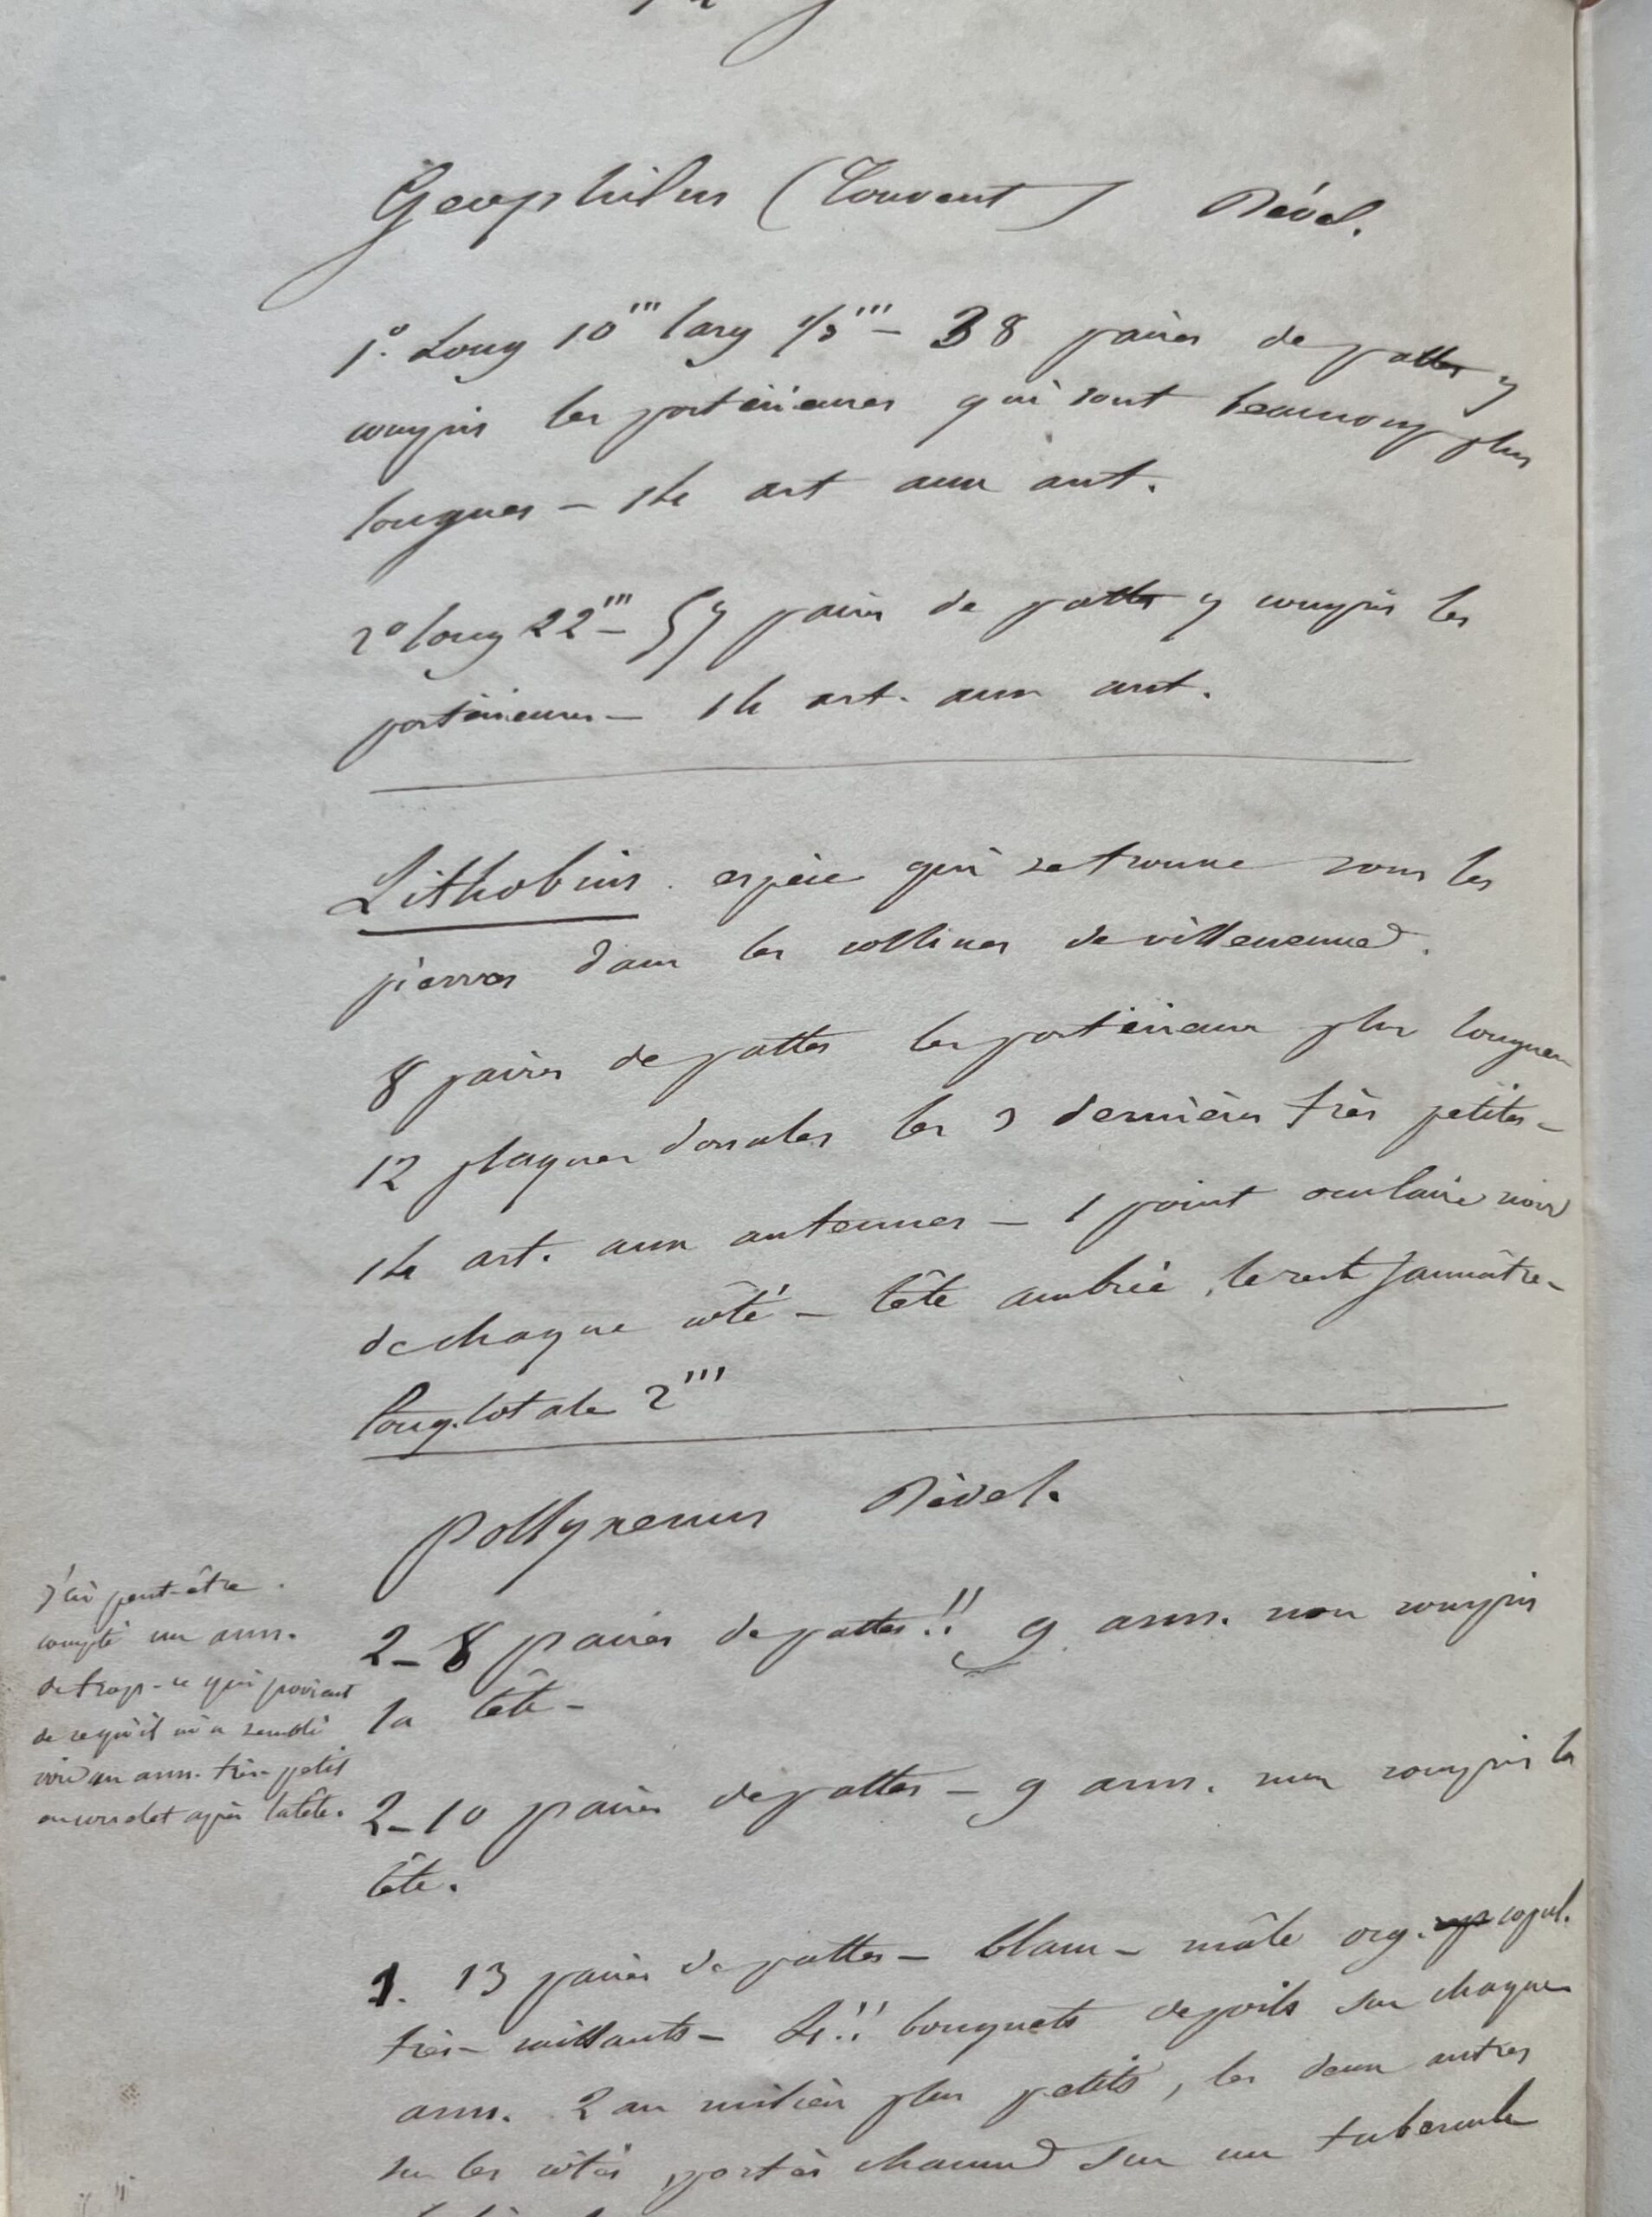 Geophilus (Couvent) Dével.
1º. Long 10''' larg 1/2''' – 38 paires de pattes y
compris les postérieures qui sont beaucoup plus
longues – 14 art aux ant.
2º long 22''' – 57 paires de pattes y compris les
postérieures – 14 art. aux ant.
Lithobius. espèce qui se trouve sous les
pierres dans les collines de villeneuve.
8 paires de pattes les postérieures plus longues
12 plaques dorsales les 3 dernières très petites –
14 art. aux antennes – 1 point oculaire noir
de chaque côté – tête ambrée, le reste jaunâtre –
long. totale 2'''
pollyxenus Dével.
2 – 8 paires de pattes!! 9 ann. non compris
la tête –
J'ai peut-être
compté un ann.
de trop – ce qui provient
de ce qu'il m'a semblé
voir un ann. très-petit
après la tête.
2 – 10 paires de pattes – 9 ann. non compris la
tête.
1. 13 paires de pattes – blanc – mâle org. copul.
très-saillants – 4!! bouquets de poils sur chaque
ann. 2 au milieu plus petits, les deux autres
sur les côtés, portés chacun sur un tubercule